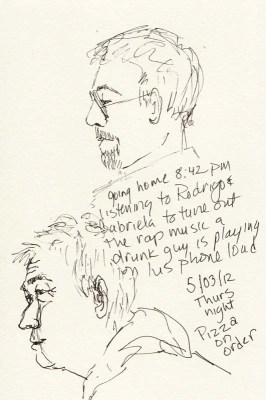 going home 8:42 pm
listening to Rodrigo &
Gabriela to tune out
the rap music a
drunk guy is playing
on his phone loud
5/03/12
Thurs
night
Pizza
on
order